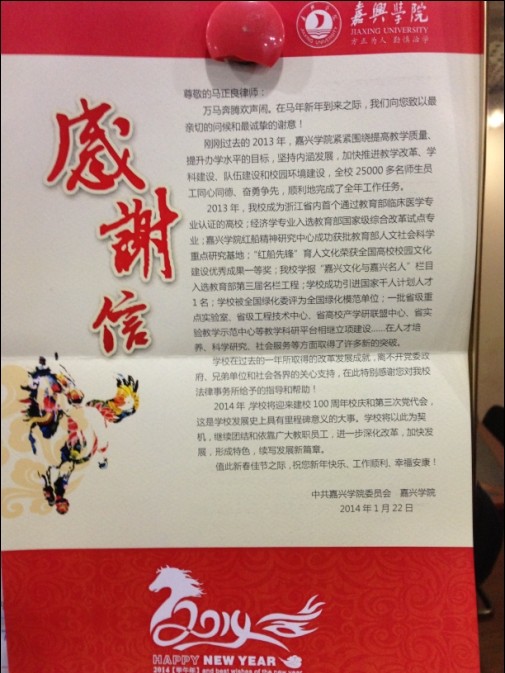 嘉興學院
JIAXING UNIVERSITY
方正为人 勤慎治学
感謝信
尊敬的马正良律师：
万马奔腾欢声闹。在马年新年到来之际，我们向您致以最
亲切的问候和最诚挚的谢意！
刚刚过去的 2013 年，嘉兴学院紧紧围绕提高教学质量、
提升办学水平的目标，坚持内涵发展，加快推进教学改革、学
科建设、队伍建设和校园环境建设，全校 25000 多名师生员
工同心同德、奋勇争先，顺利地完成了全年工作任务。
2013 年，我校成为浙江省内首个通过教育部临床医学专
业认证的高校；经济学专业入选教育部国家级综合改革试点专
业；嘉兴学院红船精神研究中心成功获批教育部人文社会科学
重点研究基地；“红船先锋”育人文化荣获全国高校校园文化
建设优秀成果一等奖；我校学报“嘉兴文化与嘉兴名人”栏目
入选教育部第三届名栏工程；学校成功引进国家千人计划人才
1 名；学校被全国绿化委评为全国绿化模范单位；一批省级重
点实验室、省级工程技术中心、省高校产学研联盟中心、省实
验教学示范中心等教学科研平台相继立项建设……在人才培
养、科学研究、社会服务等方面取得了许多新的突破。
学校在过去的一年所取得的改革发展成就，离不开党委政
府、兄弟单位和社会各界的关心支持，在此特别感谢您对我校
法律事务所给予的指导和帮助！
2014 年，学校将迎来建校 100 周年校庆和第三次党代会，
这是学校发展史上具有里程碑意义的大事。学校将以此为契
机，继续团结和依靠广大教职员工，进一步深化改革，加快发
展，形成特色，续写发展新篇章。
值此新春佳节之际，祝您新年快乐、工作顺利、幸福安康！
中共嘉兴学院委员会 嘉兴学院
2014 年 1 月 22 日
2014
HAPPY NEW YEAR
2014【甲午年】and best wishes of the new year